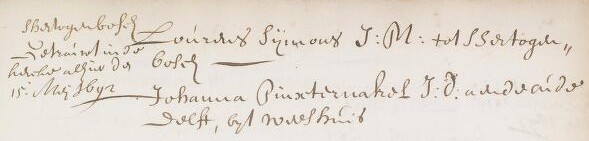 sHertogenbosch
Getrouwt in de
kercke alhier den
15: Mej 1692
Lourens Sijmons J: M: tot sHertogen„
bosch
Johanna Pinxternakel J: D: aende oude
delft, bijt weeshuis